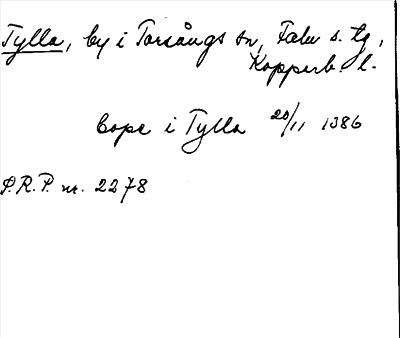 Tylla, by i Torsångs sn, Falu s. tg,
Kopparb. l.
Cope i Tylla 20/11 1386
S.R.P. nr. 2278